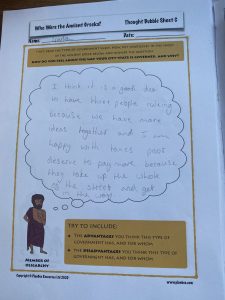 Who Were the Ancient Greeks?
Thought Bubble Sheet C
Name:
Date:
HOW DO YOU FEEL ABOUT THE WAY YOUR CITY-STATE IS GOVERNED, AND WHY?
I think it is a good idea
to have three people ruling
because we have more
ideas together and I am
happy with taxes poor
deserve to pay more because
they take up the whole
of the street and get
in the way
MEMBER OF
OLIGARCHY
TRY TO INCLUDE:
THE ADVANTAGES YOU THINK THIS TYPE OF
GOVERNMENT HAS, AND FOR WHOM
THE DISADVANTAGES YOU THINK THIS TYPE OF
GOVERNMENT HAS, AND FOR WHOM